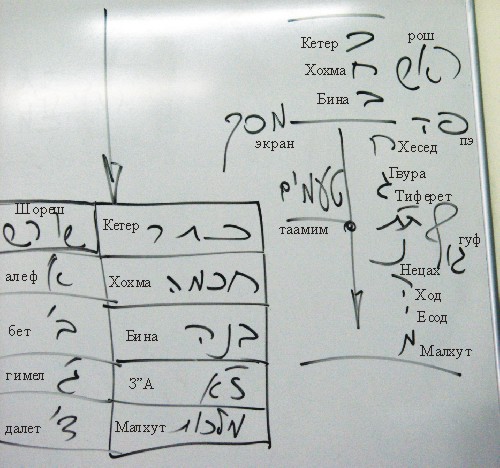 рош
Кетер כ
Хохма ח ראש
Бина ב
מסך פה
экран пэ
ח Хесед
Гвура
ג Тиферет
טעמים ת
таамим גוף гуф
נ Нецах
ה Ход
י Есод
מ Малхут
Шореш
שרש Кетер כתר
алеф א' Хохма חכמה
бет ב' Бина בנה
гимел ג' З"А ז"א
далет ד' Малхут מלכות